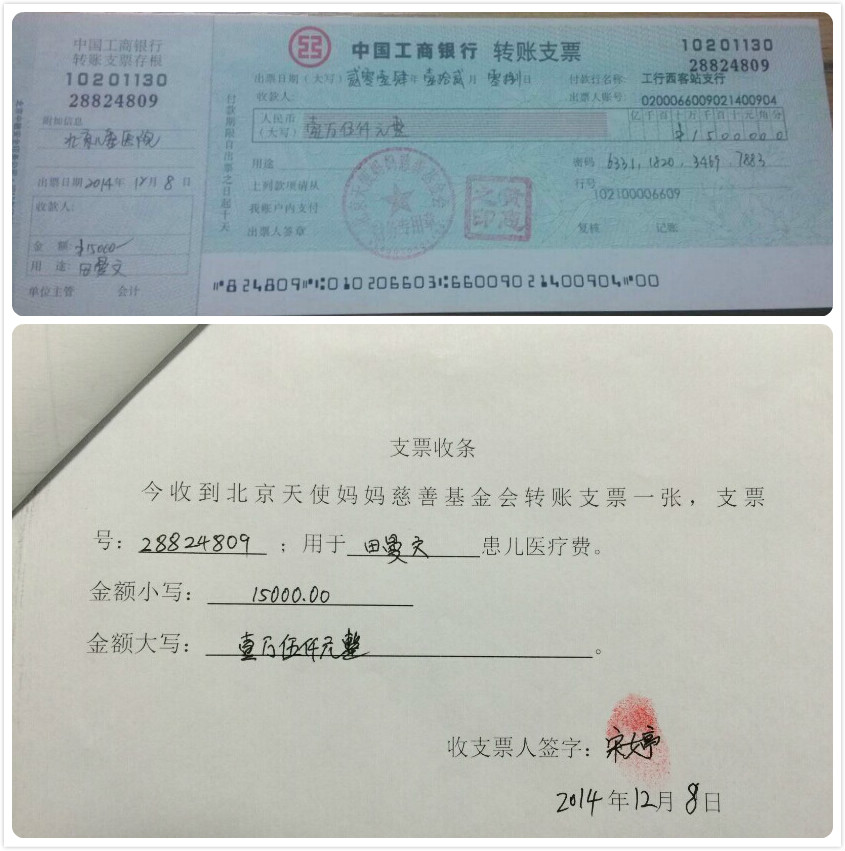 中国工商银行
转账支票存根
10201130
28824809
附加信息
北京儿童医院
出票日期 2014年 12月 8日
收款人:
金 额: ¥15000
用 途: 田曼文
单位主管 会计
中国工商银行 转账支票
10201130
28824809
出票日期(大写) 贰零壹肆年 壹拾贰月 零捌日
付款行名称: 工行西客站支行
收款人:
出票人账号: 0200066009021400904
付款期限自出票之日起十天
人民币(大写) 壹万伍仟元整
亿千百十万千百十元角分
¥1500000
用途
密码 6331, 1820, 3469, 7883
上列款项请从
行号 102100006609
我账户内支付
出票人签章
复核 记账
⑈824809⑈⑆010206603⑆6600902⑈1400904⑈00
支票收条
今收到北京天使妈妈慈善基金会转账支票一张，支票
号: 28824809 ；用于 田曼文 患儿医疗费。
金额小写: 15000.00
金额大写: 壹万伍仟元整 。
收支票人签字: 宋婷
2014年12月8日